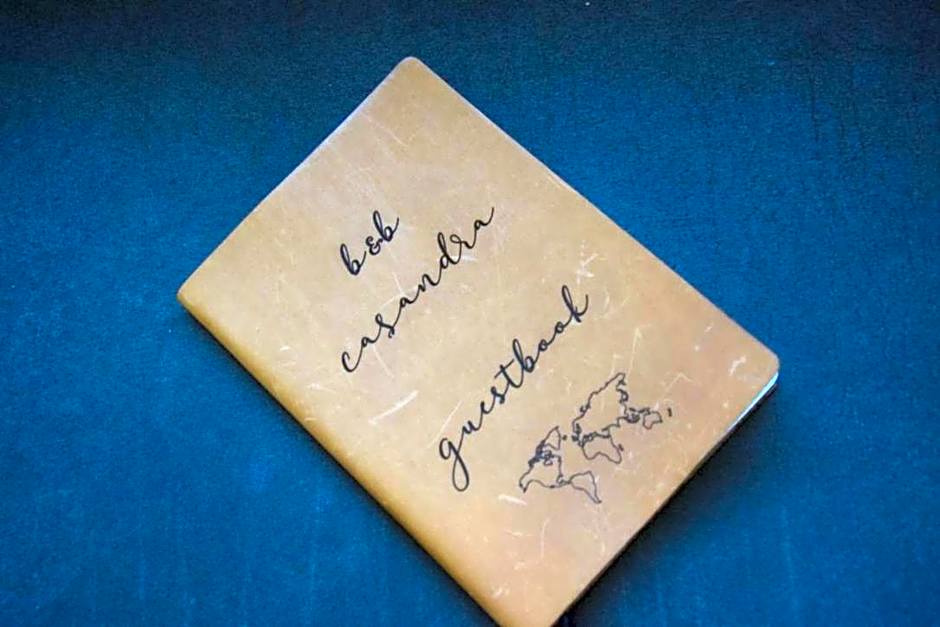 b&b
casandra
guestbook